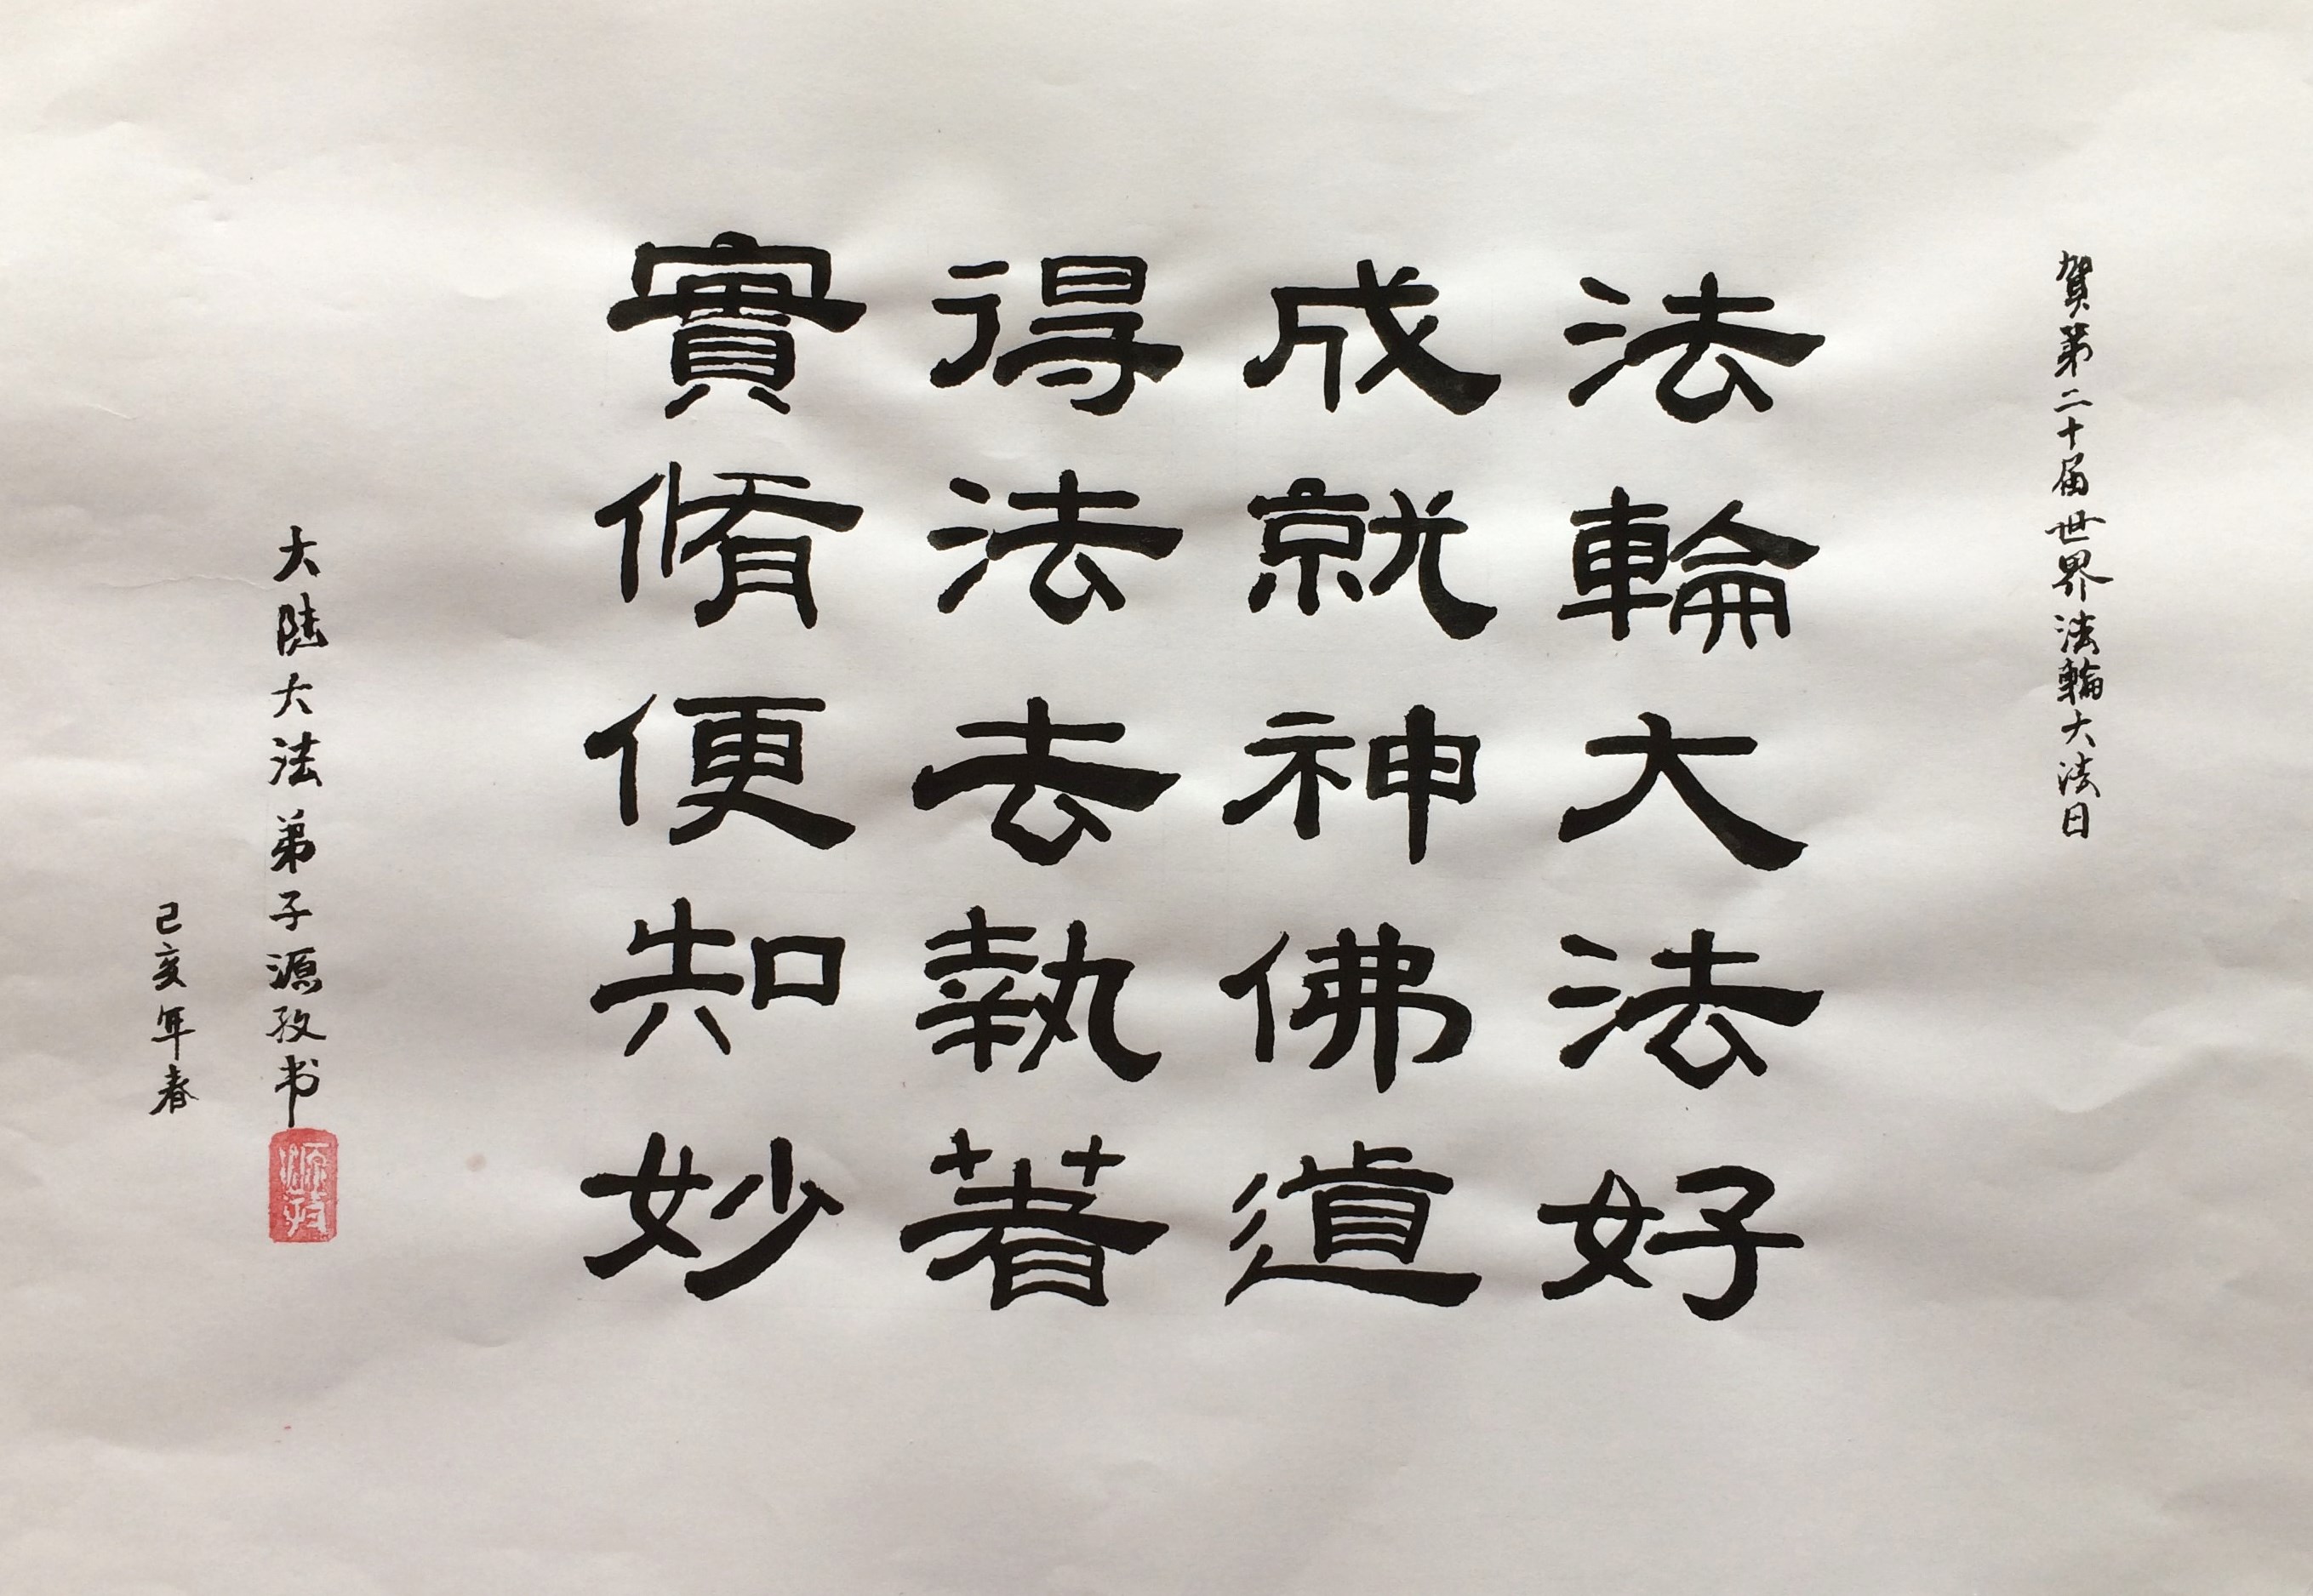 賀第二十届世界法輪大法日
法輪大法好
成就神佛道
得法去執著
實脩便知妙
大陸大法弟子源孜书
己亥年春
源孜